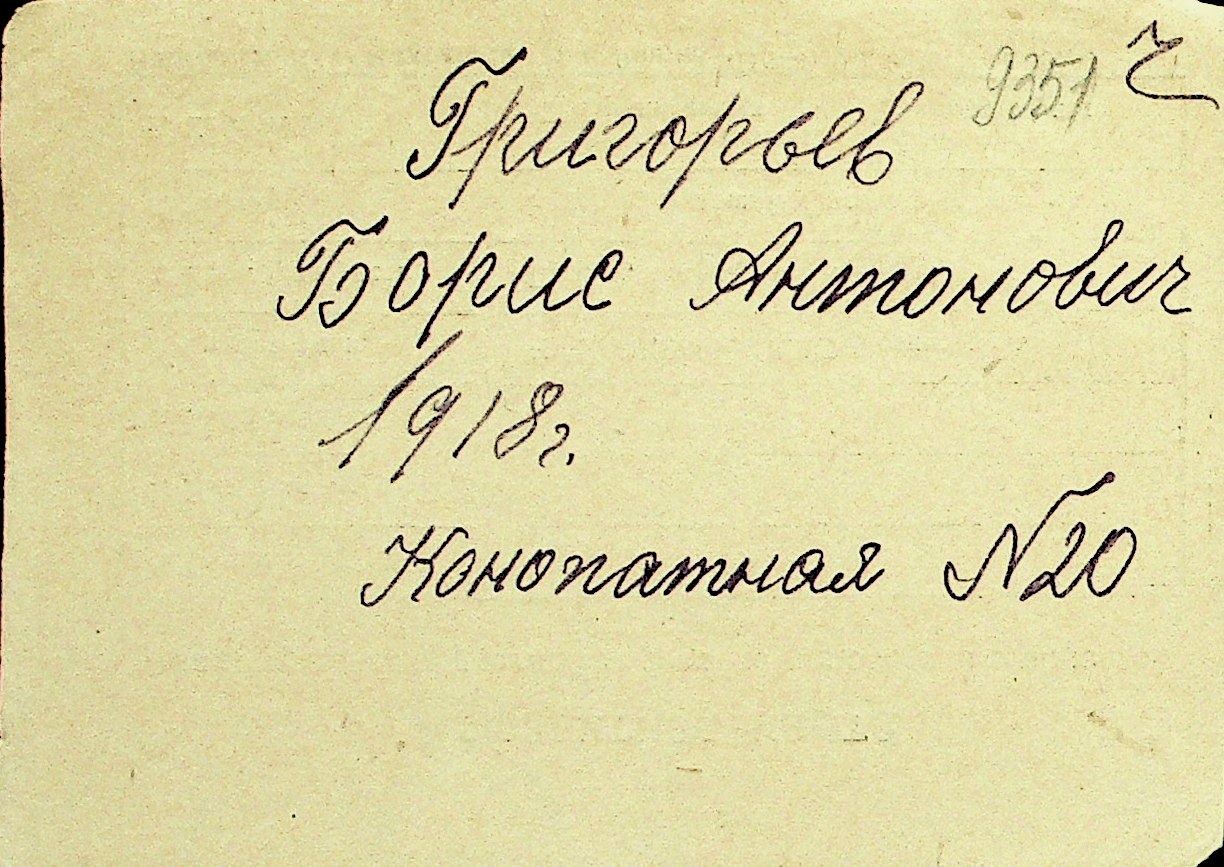 9351 ч
Григорьев
Борис Антонович
1918 г.
Конопатная N20